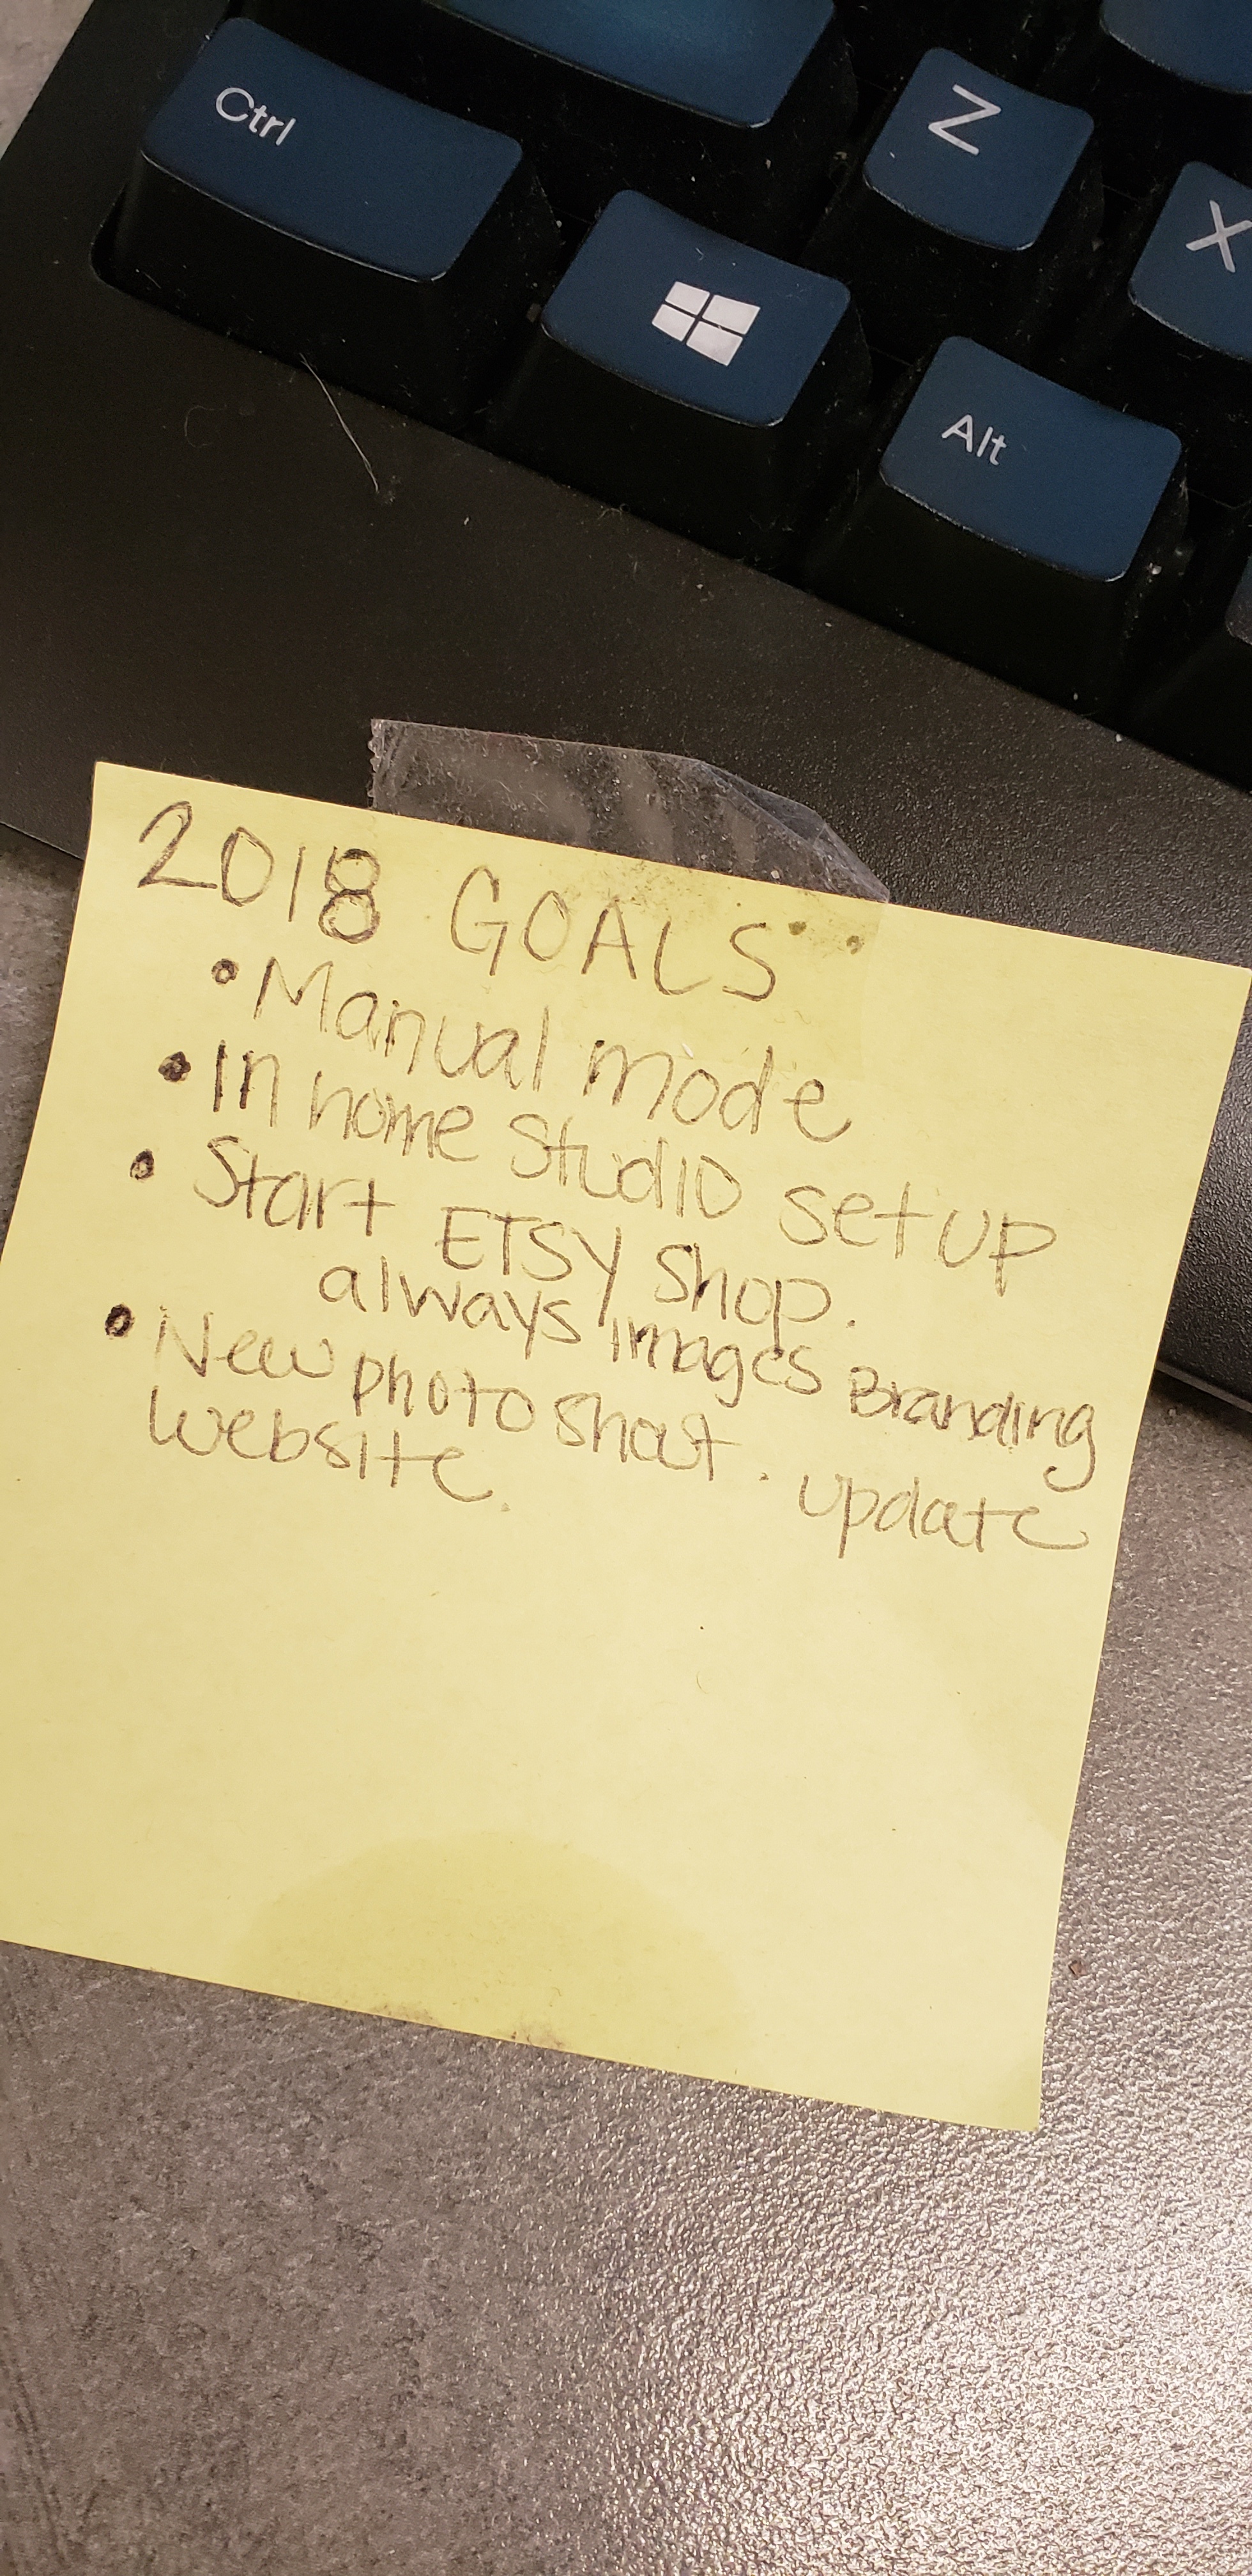 Ctrl
Z
X
Alt
2018 GOALS:
• Manual mode
• In home Studio set up
• Start ETSY Shop.
always images Branding
• New photo shoot. update
website.